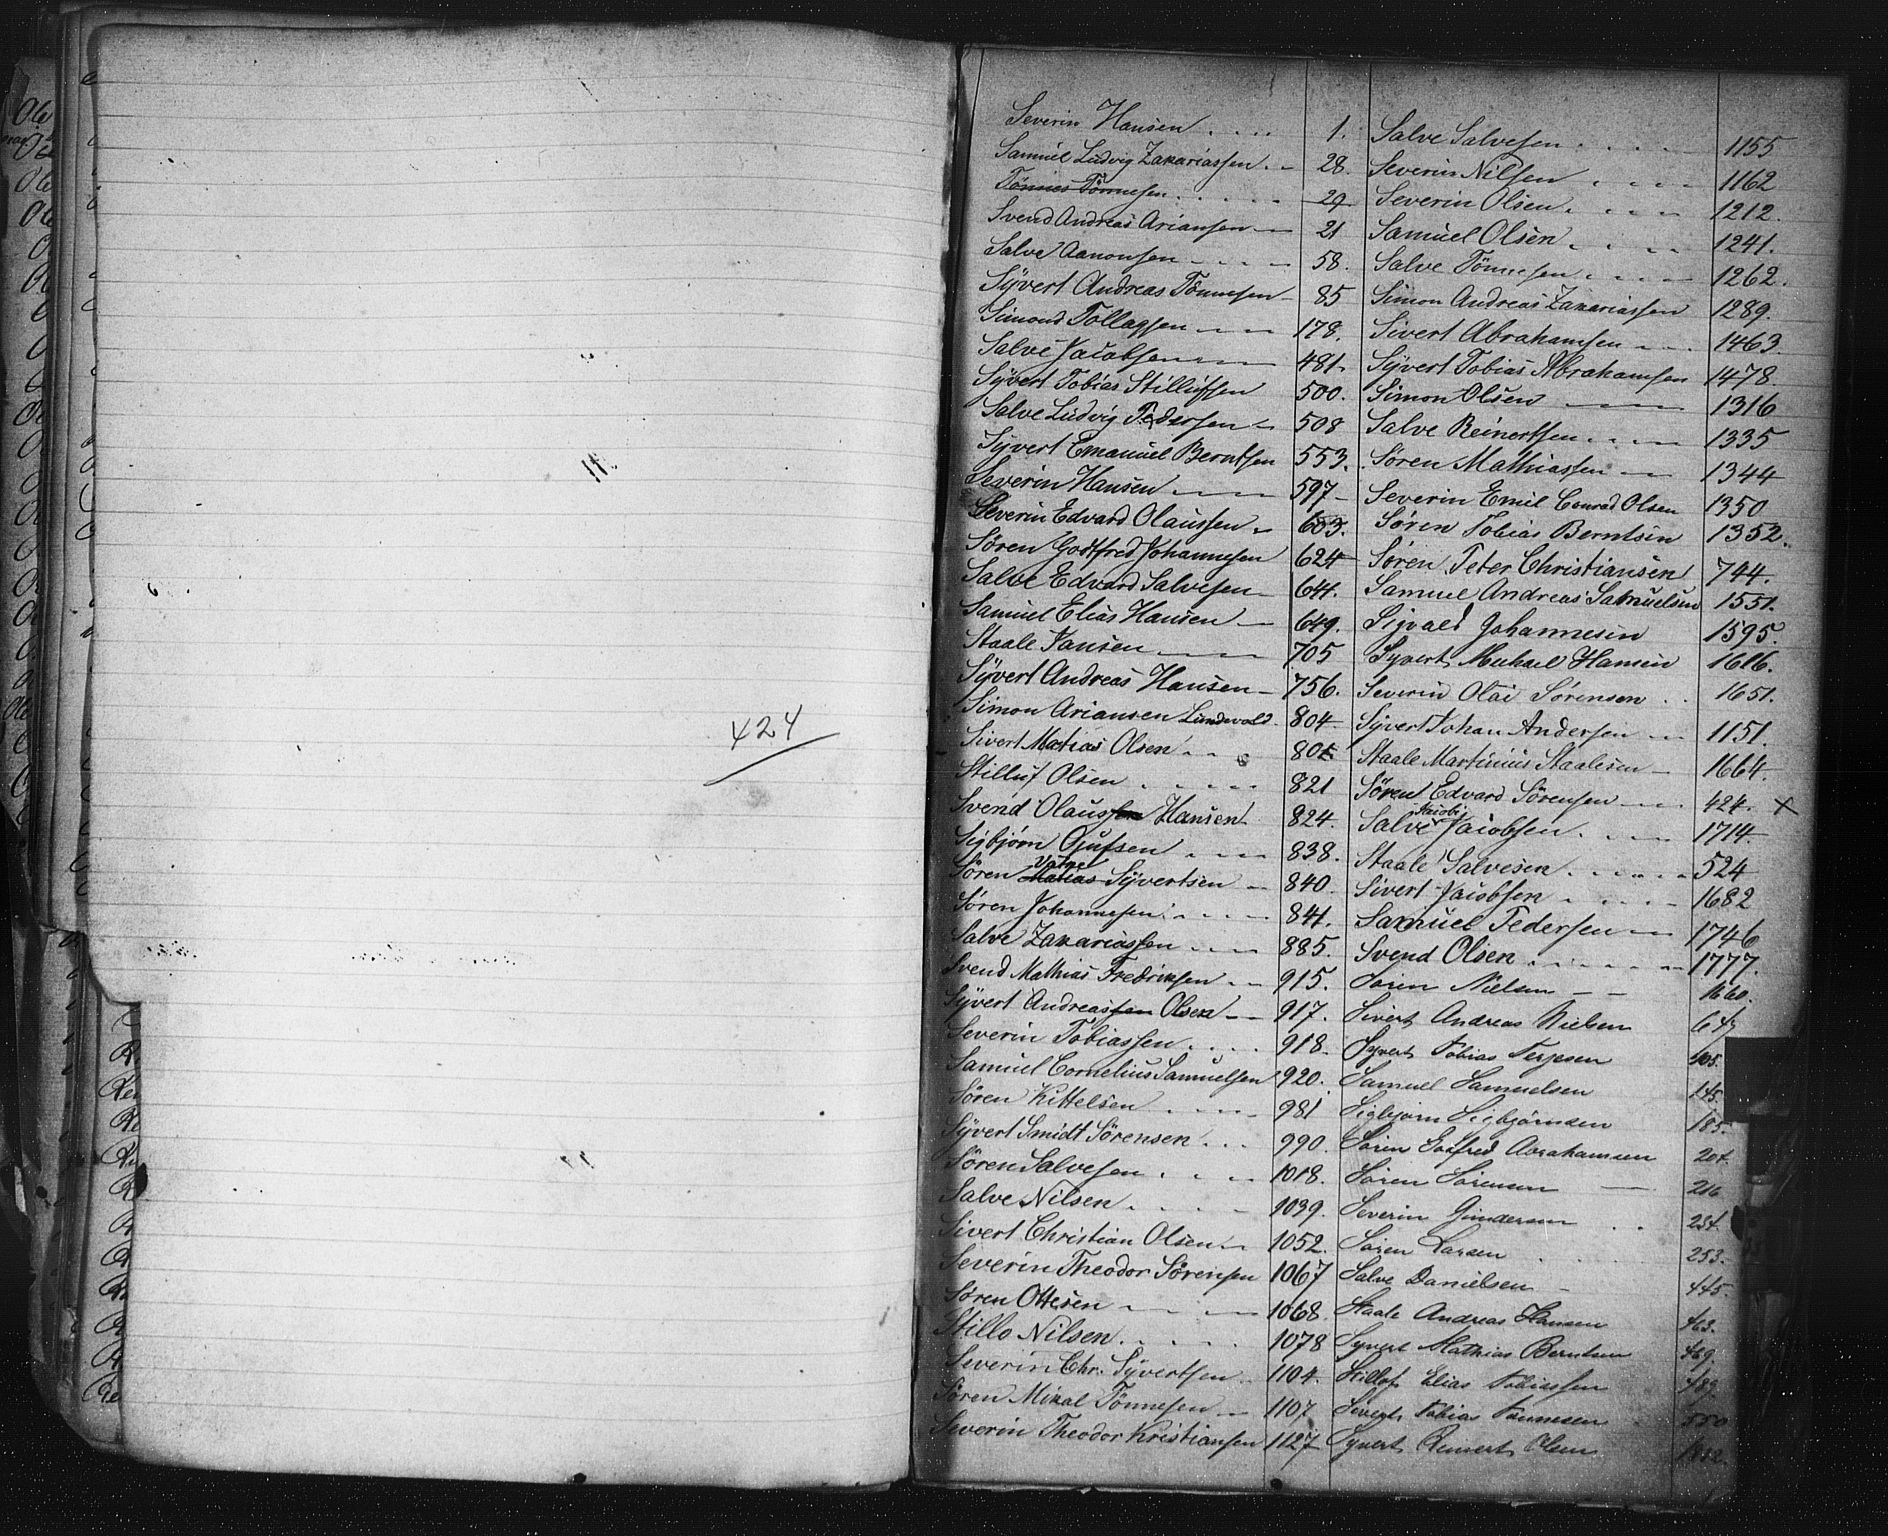 424
Severin Hansen . . . . 1.
Samuel Ludvig Zakariassen . – 28.
Tönnes Tönnesen . . . . . 29
Svend Andreas Ariansen – – 21
Salve Aanonsen – – – – 58.
Syvert Andreas Tönnesen – 85
Simond Tollagsen – – – 178.
Salve Jacobsen – – – – 481.
Syvert Tobias Stillufsen 500.
Salve Ludvig Pedersen – 508
Syvert Emanuel Berntsen 553.
Severin Hansen – – – 597 –
Severin Edvard Olaussen . 603.
Søren Godtfred Johannesen 624
Salve Edvard Salvesen – 641.
Samuel Elias Hansen – 649.
Staale Jansen – – – – 705
Syvert Andreas Hansen – 756.
Simon Ariansen Lindevold . 804
Sivert Matias Olsen . . . 805
Stilluf Olsen . . . . . 821
Svend Olaussen Hansen 824.
Sigbjørn Ojufsen . – – – 838.
Søren Matias Vatne Syvertsen – 840.
Søren Johannesen . . – – – 841.
Salve Zakariassen – – – 885.
Svend Mathias Fredriksen – – 915.
Syvert Andreassen Olsen – – 917.
Severin Tobiassen . . . . 918.
Samuel Cornelius Samuelsen 920.
Søren Kittelsen . . – – – 981
Syvert Smidt Sørensen . . . 990.
Søren Salvesen . . . – – 1018.
Salve Nilsen . . . . . 1039.
Sivert Christian Olsen – – 1052.
Severin Theodor Sörensen 1067
Søren Ottesen – – – – – 1068.
Stillo Nilsen . . . . . 1078
Severin Chr. Syvertsen . . 1104.
Søren Mikal Tönnesen – – 1107
Severin Theodor Kristiansen 1127
Salve Salvesen . . . . . 1155
Severin Nilsen . . . . – 1162
Severin Olsen . . . – – – 1212.
Samuel Olsen . . . . – 1241.
Salve Tönnesen . . – – – 1262.
Simon Andreas Zakariassen 1289.
Sivert Abrahamsen – – . . 1463.
Syvert Tobias Abrahamsen 1478
Simon Olsen – – 1316
Salve Reinertsen . . . – – 1335
Søren Mathiassen – – 1344
Severin Emil Conrad Olsen 1350
Søren Tobias Berntsen 1352.
Søren Peter Christiansen 744.
Samuel Andreas Samuelsen 1551.
Sigvald Johannesen 1595.
Syvert Michael Hansen 1616.
Severin Olai Sørensen . . 1651.
Syvert Johan Andersen – – 1151.
Staale Martinius Staalesen – 1664.
Søren Edvard Sörensen – – – 424. ×
Salve Jacobi Jacobsen . . . – 1714.
Staale Salvesen . . . . . – 524
Sivert Jacobsen . . . . – – 1682
Samuel Pedersen – – – 1746
Svend Olsen . . . . . – – 1777.
Søren Nielsen – – 1660.
Sivert Andreas Nielsen 647
Syvert Tobias Terjesen 105.
Samuel Samuelsen 145.
Sigbjørn Sigbjørnsen 185.
Søren Gotfred Abrahamsen 204.
Søren Sørensen – 216
Severin Gundersen . . 234.
Søren Larsen . . . . 253.
Salve Danielsen – 445.
Staale Andreas Hansen 463.
Syvert Mathias Berntsen 469.
Stillof Elias Tobiassen 489.
Sivert Tobias Tønnesen 550
Syvert Reinert Olsen